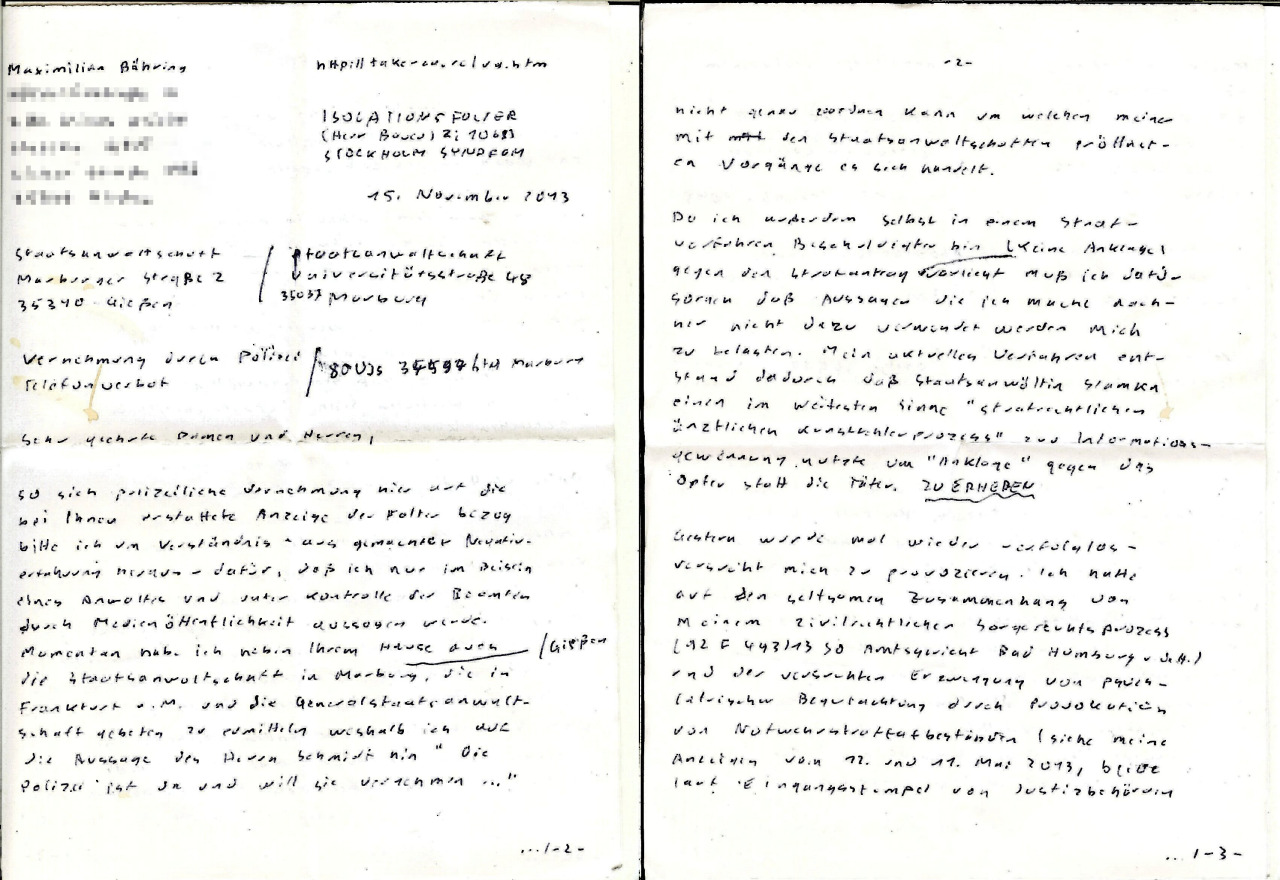 Maximilian Bähring
http://take-ca.re/va.htm
ISOLATIONSFOLTER
(Herr Bauer) Zi 10683
STOCKHOLM SYNDROM
15. November 2013
Staatsanwaltschaft
Marburger Straße 2
35390 Gießen
/ Staatsanwaltschaft
Universitätsstraße 48
35037 Marburg
Vernehmung durch Polizei
Telefonverbot
/ StA Marburg
Sehr geehrte Damen und Herren,
so sich polizeiliche Vernehmung hier auf die
bei Ihnen erstattete Anzeige der Folter bezog
bitte ich um Verständnis - aus gemachter Negativ-
erfahrung heraus - dafür, daß ich nur im Beisein
eines Anwaltes und unter Kontrolle der Beamten
durch Medienöffentlichkeit aussagen werde.
Momentan habe ich neben Ihrem Hause auch /Gießen
die Staatsanwaltschaft in Marburg, die in
Frankfurt a.M. und die Generalstaatsanwalt-
schaft gebeten zu ermitteln weshalb ich auf
die Aussage des Herren Schmidt hin "Die
Polizei ist da und will sie vernehmen ..."
.../-2-
-2-
nicht genau zuordnen kann um welchen meiner
mit den Staatsanwaltschaften eröffnet-
en Vorgänge es sich handelt.
Da ich außerdem selbst in einem Straf-
verfahren Beschuldigter bin (keine Anklage)
gegen den Strafantrag vorliegt muß ich dafür
sorgen daß Aussagen die ich mache nach-
her nicht dazu verwendet werden mich
zu belasten. Mein aktuelles Verfahren ent-
stand dadurch daß Staatsanwältin
einen im weitesten Sinne "strafrechtlichen
ärztlichen Kunstfehlerprozess" zur Informations-
gewinnung nutzte um "Anklage" gegen das
Opfer statt die Täter. ZU ERHEBEN
Gestern wurde mal wieder erfolglos
versucht mich zu provozieren. Ich hatte
auf den seltsamen Zusammenhang von
meinem zivilrechtlichen Sorgerechtsprozess
(92 F 493/13 SO Amtsgericht Bad Homburg v.d.H.)
und der versuchten Erzwingung von psych-
iatrischer Begutachtung durch Provokation
von Notwehrstraftatbeständen (siehe meine
Anzeigen vom 12. und 11. Mai 2013, beide
laut Eingangsstempel von Justizbehörden
.../-3-